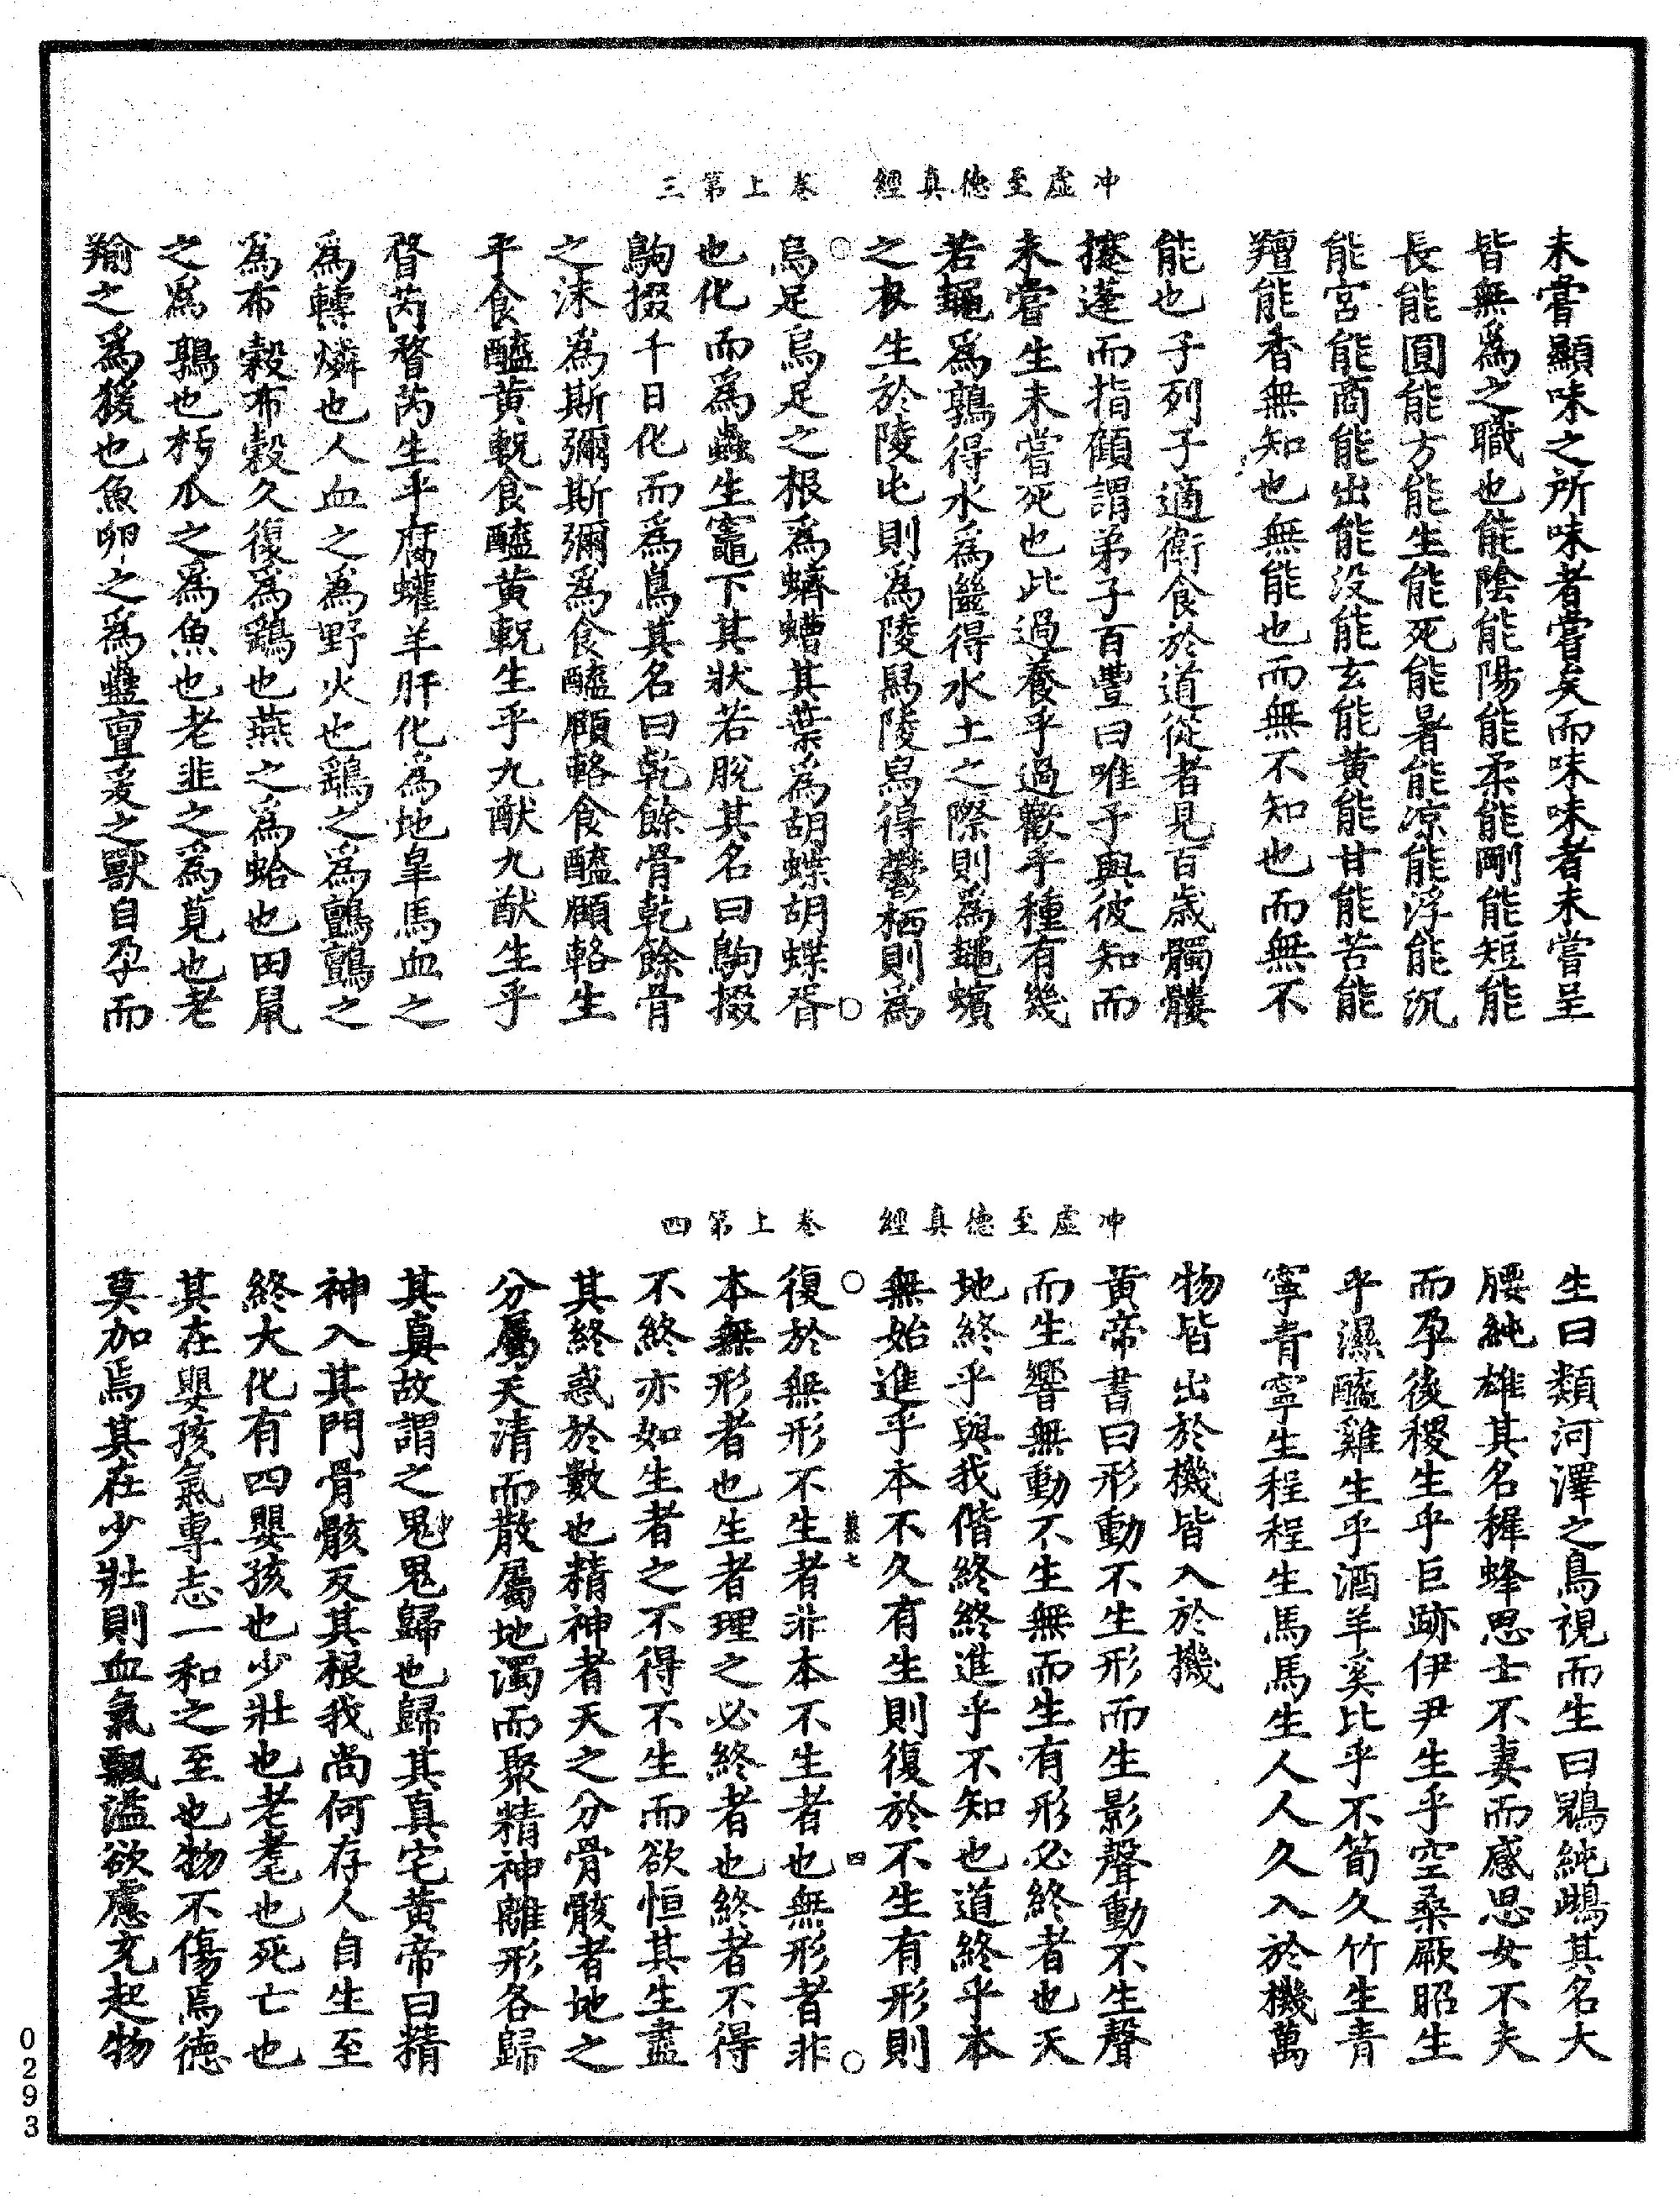 冲虛至德真經　卷上第三
未嘗顯味之所味者嘗矣而味味者未嘗呈
皆無為之職也能陰能陽能柔能剛能短能
長能圓能方能生能死能暑能凉能浮能沉
能宮能商能出能没能玄能黄能甘能苦能
羶能香無知也無能也而無不知也而無不
能也子列子適衛食於道從者見百歲髑髏
攓蓬而指顧謂弟子百豐曰唯予與彼知而
未嘗生未嘗死也此過養乎過歡乎種有幾
若䵷為鶉得水為㡭得水土之際則為䵷蠙
之衣生於陵屯則為陵舄陵舄得鬱栖則為
烏足烏足之根為蠐螬其葉為胡蝶胡蝶胥
也化而為蟲生竈下其狀若脫其名曰鴝掇
鴝掇千日化而為鳥其名曰乾餘骨乾餘骨
之沫為斯彌斯彌為食醯頤輅食醯頤輅生
乎食醯黄軦食醯黄軦生乎九猷九猷生乎
瞀芮瞀芮生乎腐蠸羊肝化為地臯馬血之
為轉燐也人血之為野火也鷂之為鸇鸇之
為布穀布穀久復為鷂也燕之為蛤也田鼠
之為鶉也朽瓜之為魚也老韭之為莧也老
羭之為猨也魚卵之為蟲亶爰之獸自孕而
冲虛至德真經　卷上第四
生曰類河澤之鳥視而生曰鶂純鴟其名大
腰純雄其名稺蜂思士不妻而感思女不夫
而孕後稷生乎巨跡伊尹生乎空桑厥昭生
乎濕醯雞生乎酒羊奚比乎不筍久竹生青
寧青寧生程程生馬馬生人人久入於機萬
物皆出於機皆入於機
黄帝書曰形動不生形而生影聲動不生聲
而生響無動不生無而生有形必終者也天
地終乎與我偕終終進乎不知也道終乎本
無始進乎本不久有生則復於不生有形則
七　四
復於無形不生者非本不生者也無形者非
本無形者也生者理之必終者也終者不得
不終亦如生者之不得不生而欲恒其生盡
其終惑於數也精神者天之分骨骸者地之
分屬天清而散屬地濁而聚精神離形各歸
其真故謂之鬼鬼歸也歸其真宅黄帝曰精
神入其門骨骸反其根我尚何存人自生至
終大化有四嬰孩也少壯也老耄也死亡也
其在嬰孩氣專志一和之至也物不傷焉德
莫加焉其在少壯則血氣飄溢欲慮充起物
0293